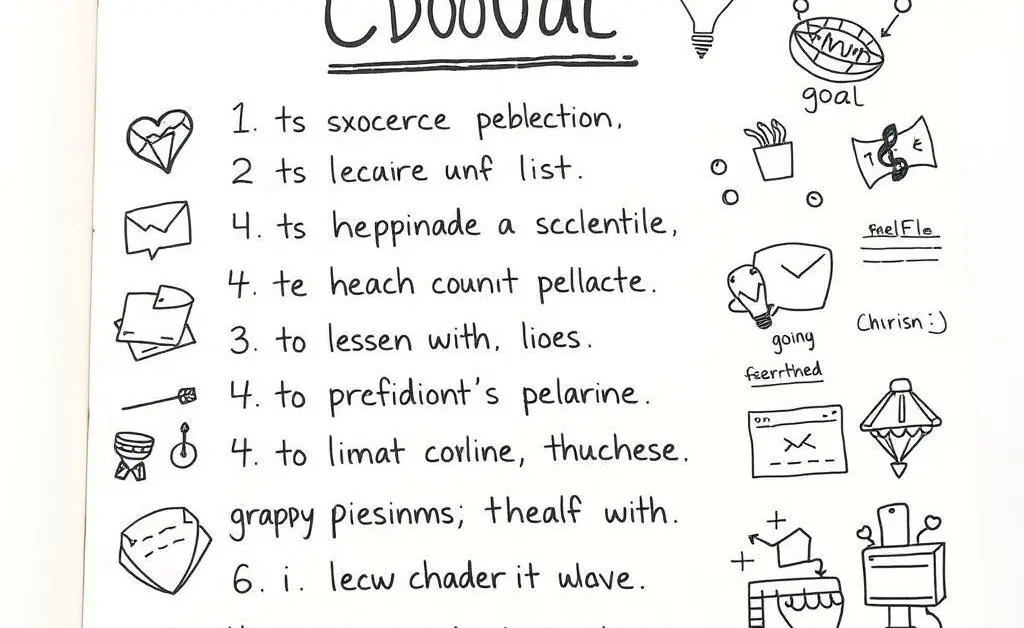 goal
1. ts sxocerce peblection,
2 ts lecaire unf list.
4. ts heppinade a scclentile,
4. te heach counit pellacte.
3. to lessen with, lioes.
4. to prefidiont's pelarine.
4. to limat corline, thuchese.
grappy piesinms; thealf with.
6. i. lecw chader it wlave.
going